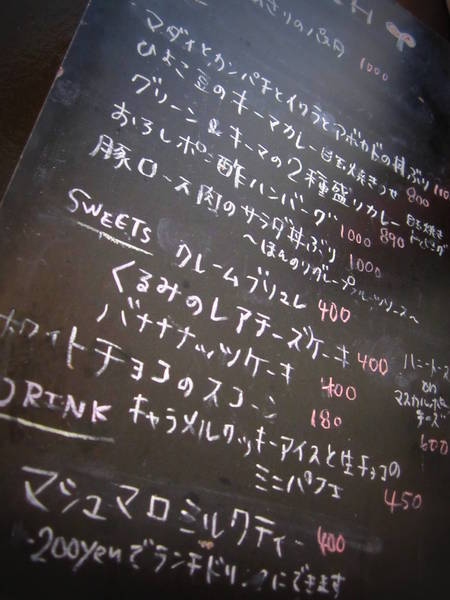 CH
あさりのパスタ 1000
マダイとカンパチとイクラとアボカドの丼ぶり
ひよこ豆のキーマカレー 目玉焼きつき 800
グリーン&キーマの2種盛りカレー 890 目玉焼き
おろしポン酢ハンバーグ 1000
豚ロース肉のサラダ丼ぶり 1000
〜ほんのりグレープフルーツソース〜
SWEETS クレームブリュレ 400
くるみのレアチーズケーキ 400
バナナナッツケーキ 400
ハニートースト
on
マスカルポーネ
チーズ
600
ホワイトチョコのスコーン 180
キャラメルクッキーアイスと生チョコの
ミニパフェ 450
DRINK
マシュマロミルクティー 400
-200yenでランチドリンクにできます